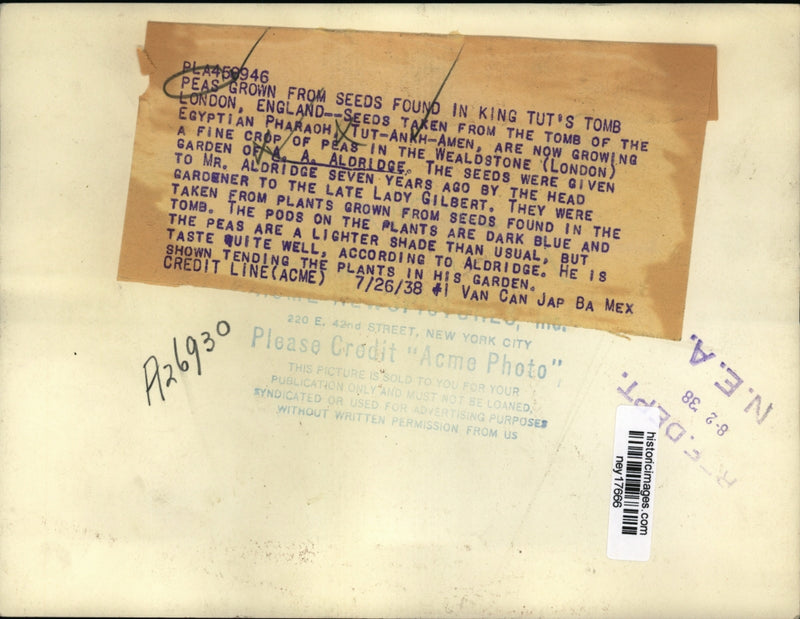 PLA456946
PEAS GROWN FROM SEEDS FOUND IN KING TUT'S TOMB
LONDON, ENGLAND--SEEDS TAKEN FROM THE TOMB OF THE
EGYPTIAN PHARAOH, TUT-ANKH-AMEN, ARE NOW GROWING
A FINE CROP OF PEAS IN THE WEALDSTONE (LONDON)
GARDEN OF A. A. ALDRIDGE. THE SEEDS WERE GIVEN
TO MR. ALDRIDGE SEVEN YEARS AGO BY THE HEAD
GARDENER TO THE LATE LADY GILBERT. THEY WERE
TAKEN FROM PLANTS GROWN FROM SEEDS FOUND IN THE
TOMB. THE PODS ON THE PLANTS ARE DARK BLUE AND
THE PEAS ARE A LIGHTER SHADE THAN USUAL, BUT
TASTE QUITE WELL, ACCORDING TO ALDRIDGE. HE IS
SHOWN TENDING THE PLANTS IN HIS GARDEN.
CREDIT LINE(ACME) 7/26/38 #1 VAN CAN JAP BA MEX
220 E. 42nd STREET, NEW YORK CITY
Please Credit "Acme Photo"
THIS PICTURE IS SOLD TO YOU FOR YOUR
PUBLICATION ONLY AND MUST NOT BE LOANED,
SYNDICATED OR USED FOR ADVERTISING PURPOSES
WITHOUT WRITTEN PERMISSION FROM US
A26930
DEPT.
8-2-38
N.E.A.
historicimages.com
ney17666